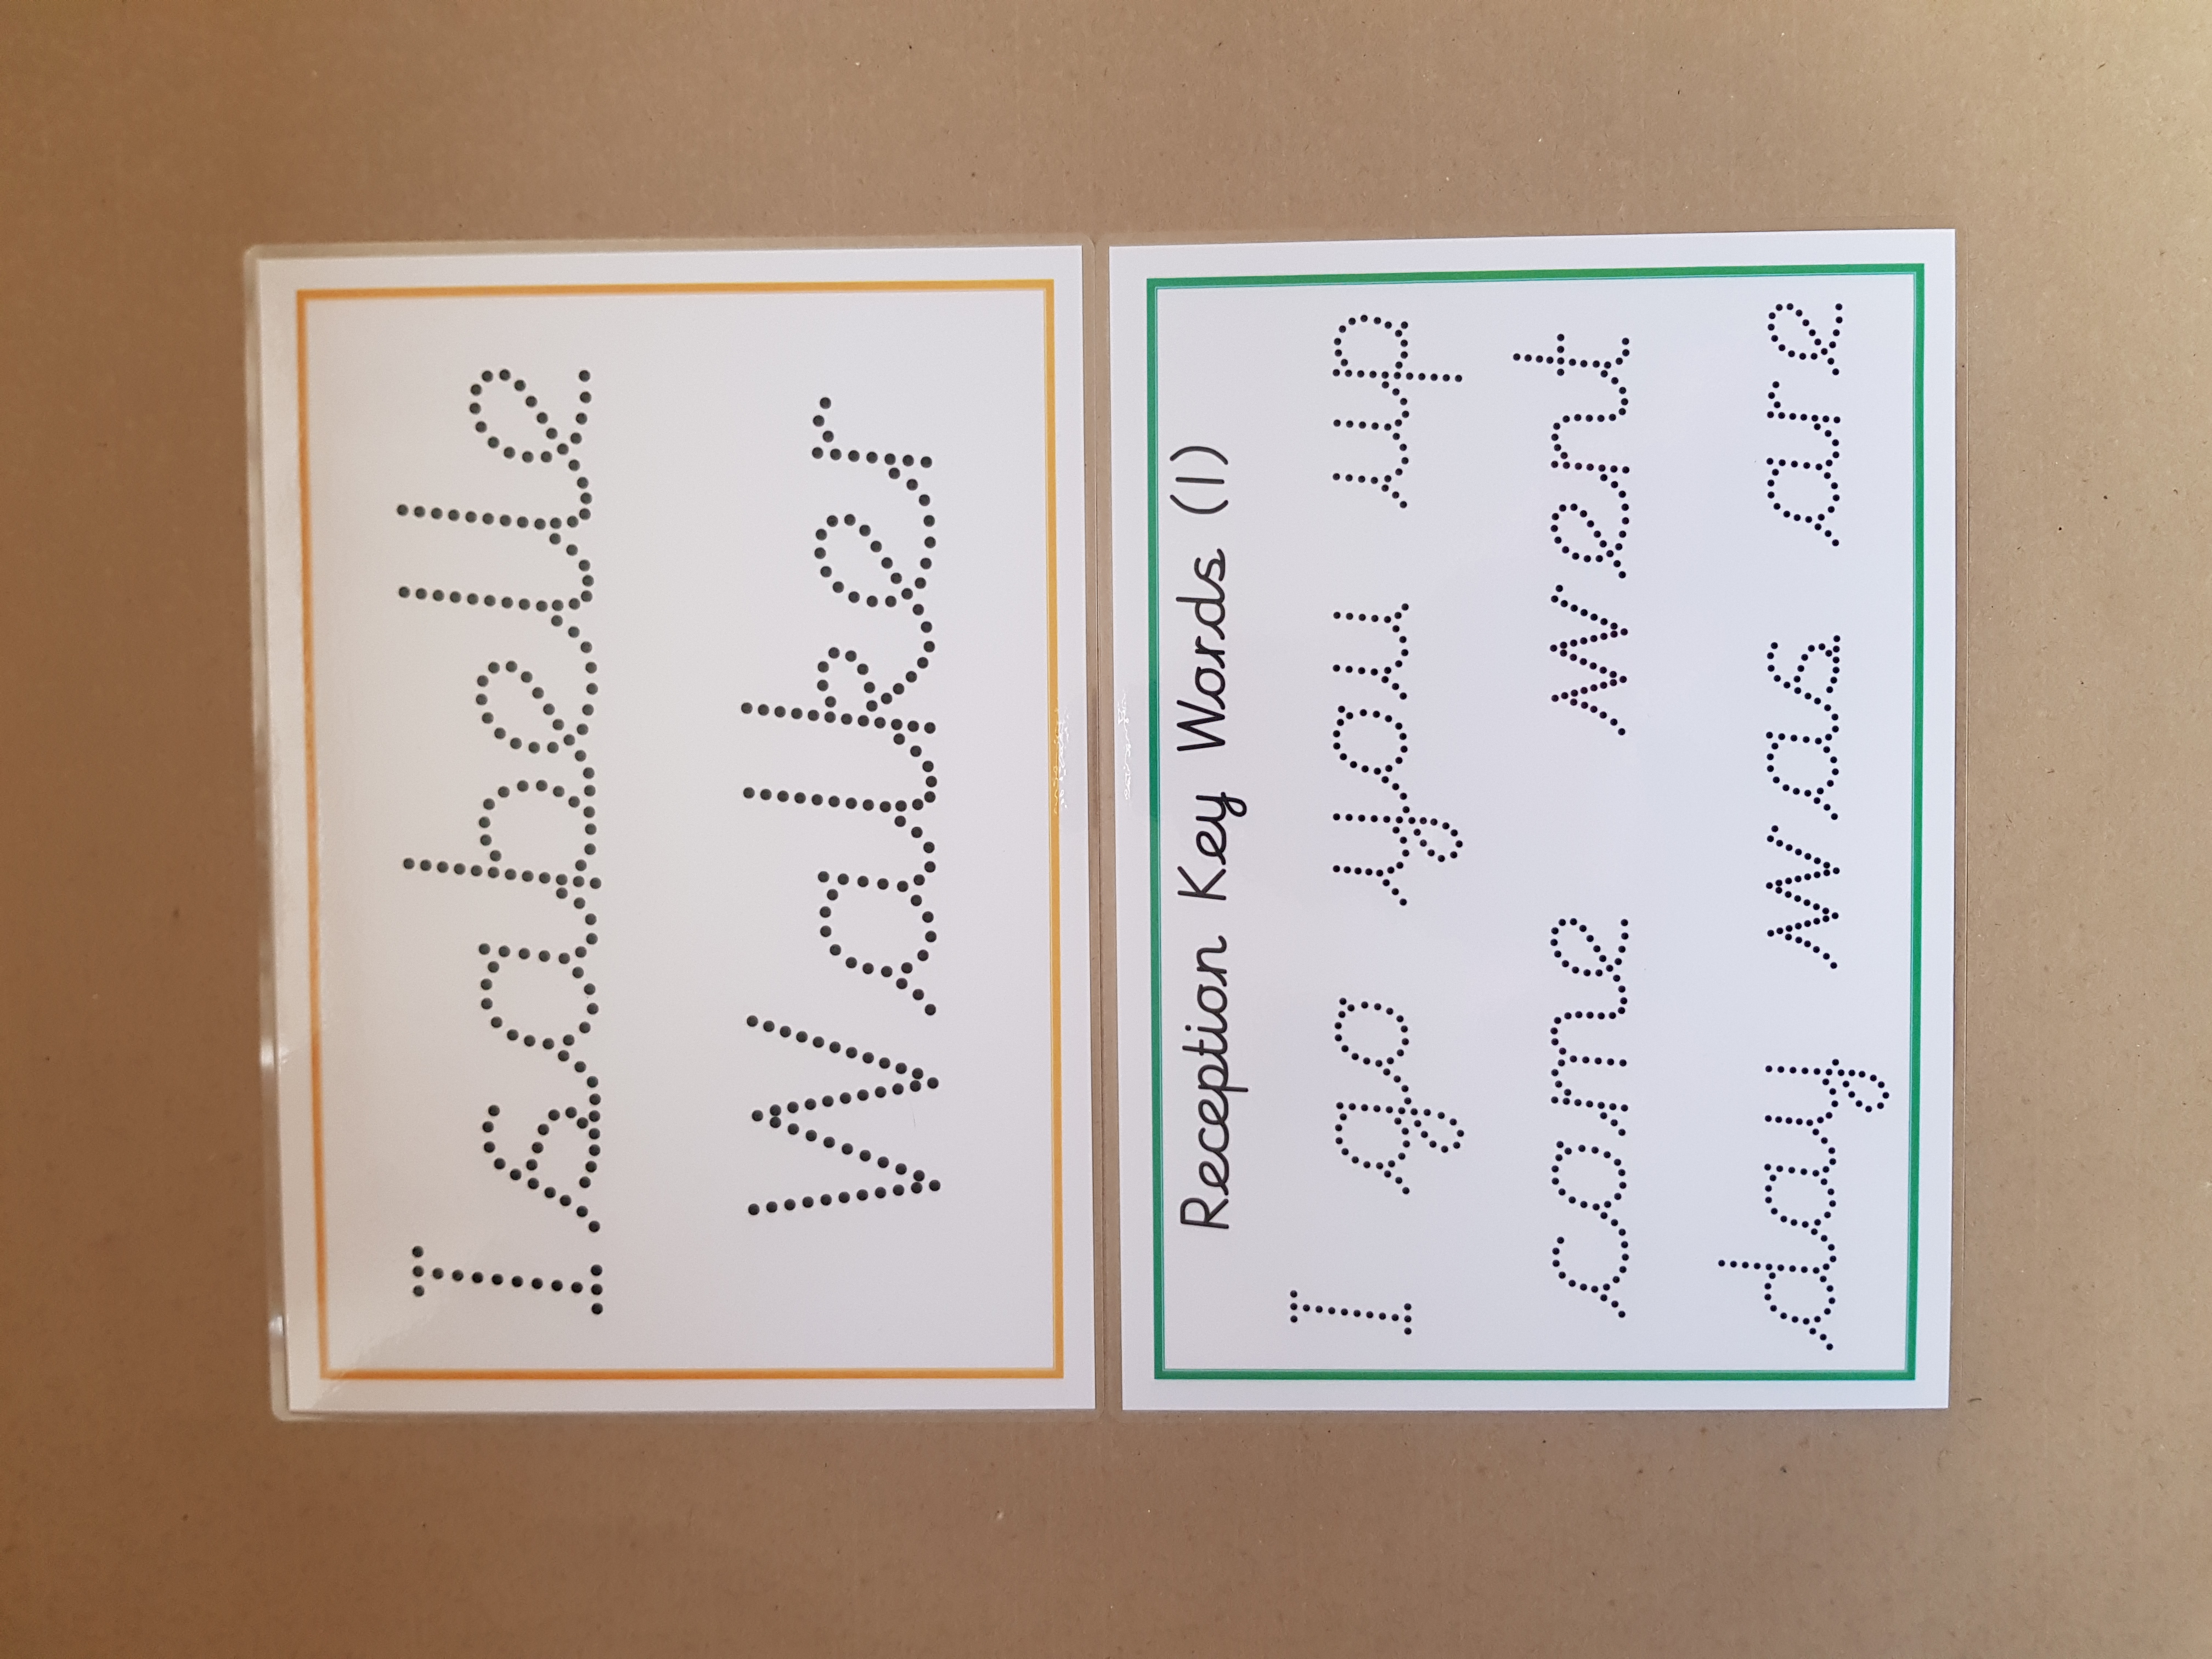 Isabelle
Walker
Reception Key Words (1)
I go you up
come went
day was are